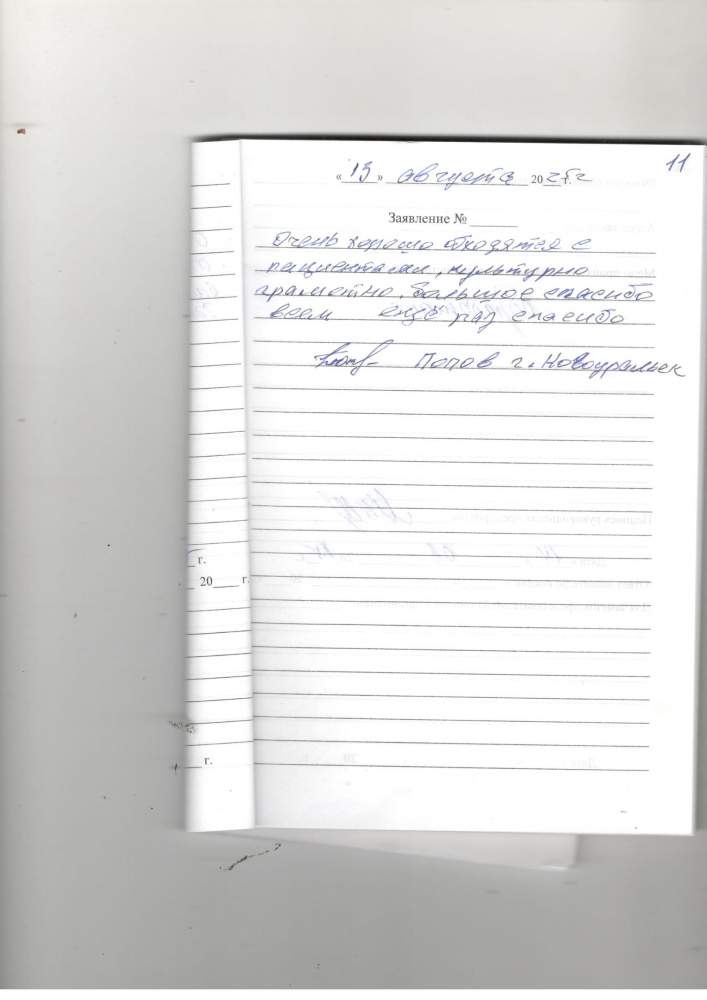 11
« 13 » августа 2025 г.
Заявление № ______
Очень хорошо обходятся с
пациентами, культурно
грамотно. большое спасибо
всем ещё раз спасибо
Попов г. Новоуральск
г.
20____ г.
г.